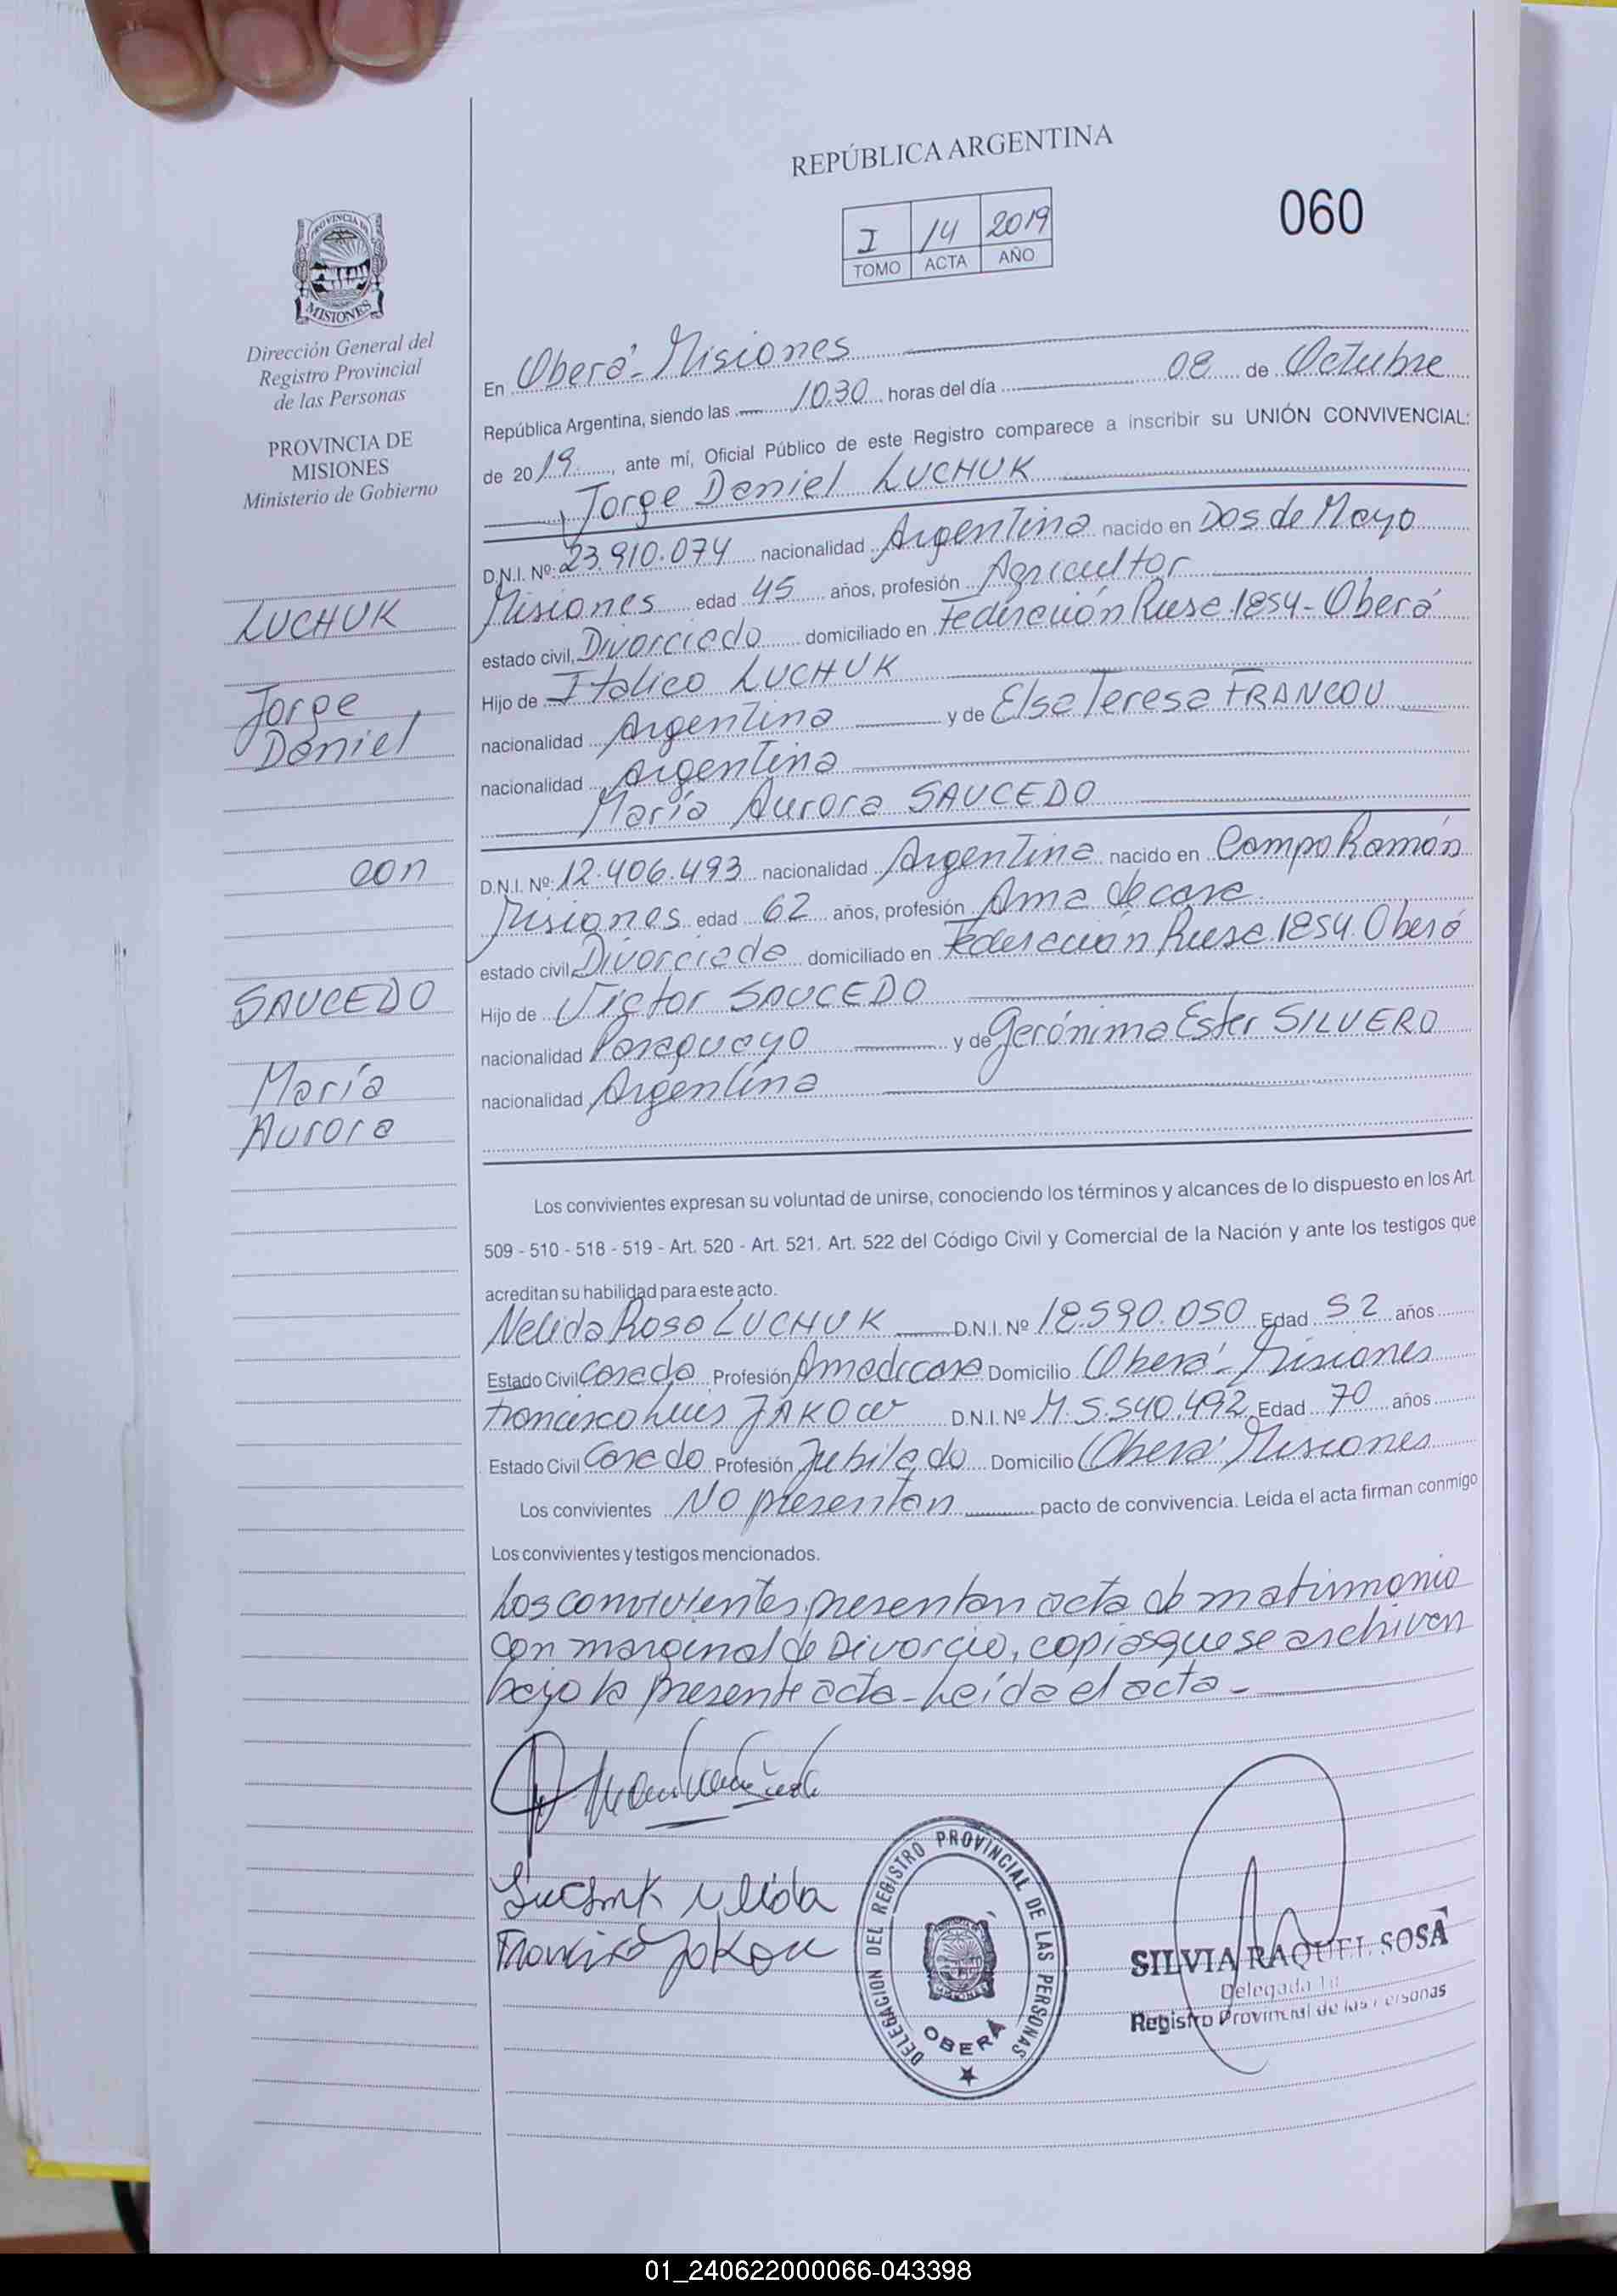 REPÚBLICA ARGENTINA
060
I 14 2019
TOMO ACTA AÑO
PROVINCIA DE
MISIONES
Dirección General del
Registro Provincial
de las Personas
PROVINCIA DE
MISIONES
Ministerio de Gobierno
LUCHUK
Jorge
Daniel
con
SAUCEDO
María
Aurora
En Oberá - Misiones
República Argentina, siendo las 10.30 horas del día 08 de Octubre
de 2019, ante mí, Oficial Público de este Registro comparece a inscribir su UNIÓN CONVIVENCIAL:
Jorge Daniel LUCHUK
D.N.I. Nº 23.910.074 nacionalidad Argentina nacido en Dos de Mayo
Misiones edad 45 años, profesión Agricultor
estado civil, Divorciado domiciliado en Federación Ruse 1854 - Oberá
Hijo de Italico LUCHUK
nacionalidad Argentina y de Elsa Teresa FRANCOU
nacionalidad Argentina
María Aurora SAUCEDO
D.N.I. Nº 12.406.493 nacionalidad Argentina nacido en Campo Ramón
Misiones edad 62 años, profesión Ama de casa
estado civil Divorciada domiciliado en Federación Ruse 1854 Oberá
Hijo de Víctor SAUCEDO
nacionalidad Paraguayo y de Gerónima Ester SILVERO
nacionalidad Argentina
Los convivientes expresan su voluntad de unirse, conociendo los términos y alcances de lo dispuesto en los Art.
509 - 510 - 518 - 519 - Art. 520 - Art. 521. Art. 522 del Código Civil y Comercial de la Nación y ante los testigos que
acreditan su habilidad para este acto.
Nelida Rosa LUCHUK D.N.I. Nº 18.590.050 Edad 52 años
Estado Civil Casada Profesión Ama de casa Domicilio Oberá - Misiones
Francisco Luis JAKOW D.N.I. Nº M.5.540.492 Edad 70 años
Estado Civil Casado Profesión Jubilado Domicilio Oberá Misiones
Los convivientes No presentan pacto de convivencia. Leída el acta firman conmigo
Los convivientes y testigos mencionados.
Los convivientes presentan acta de matrimonio
con marginal de Divorcio, copias que se archivan
bajo la presente acta - Leída el acta -
Luchuk Nelida
Francisco Jakow
DELEGACION DEL REGISTRO PROVINCIAL DE LAS PERSONAS
OBERÁ
SILVIA RAQUEL SOSA
Delegada
Registro Provincial de las Personas
01_240622000066-043398